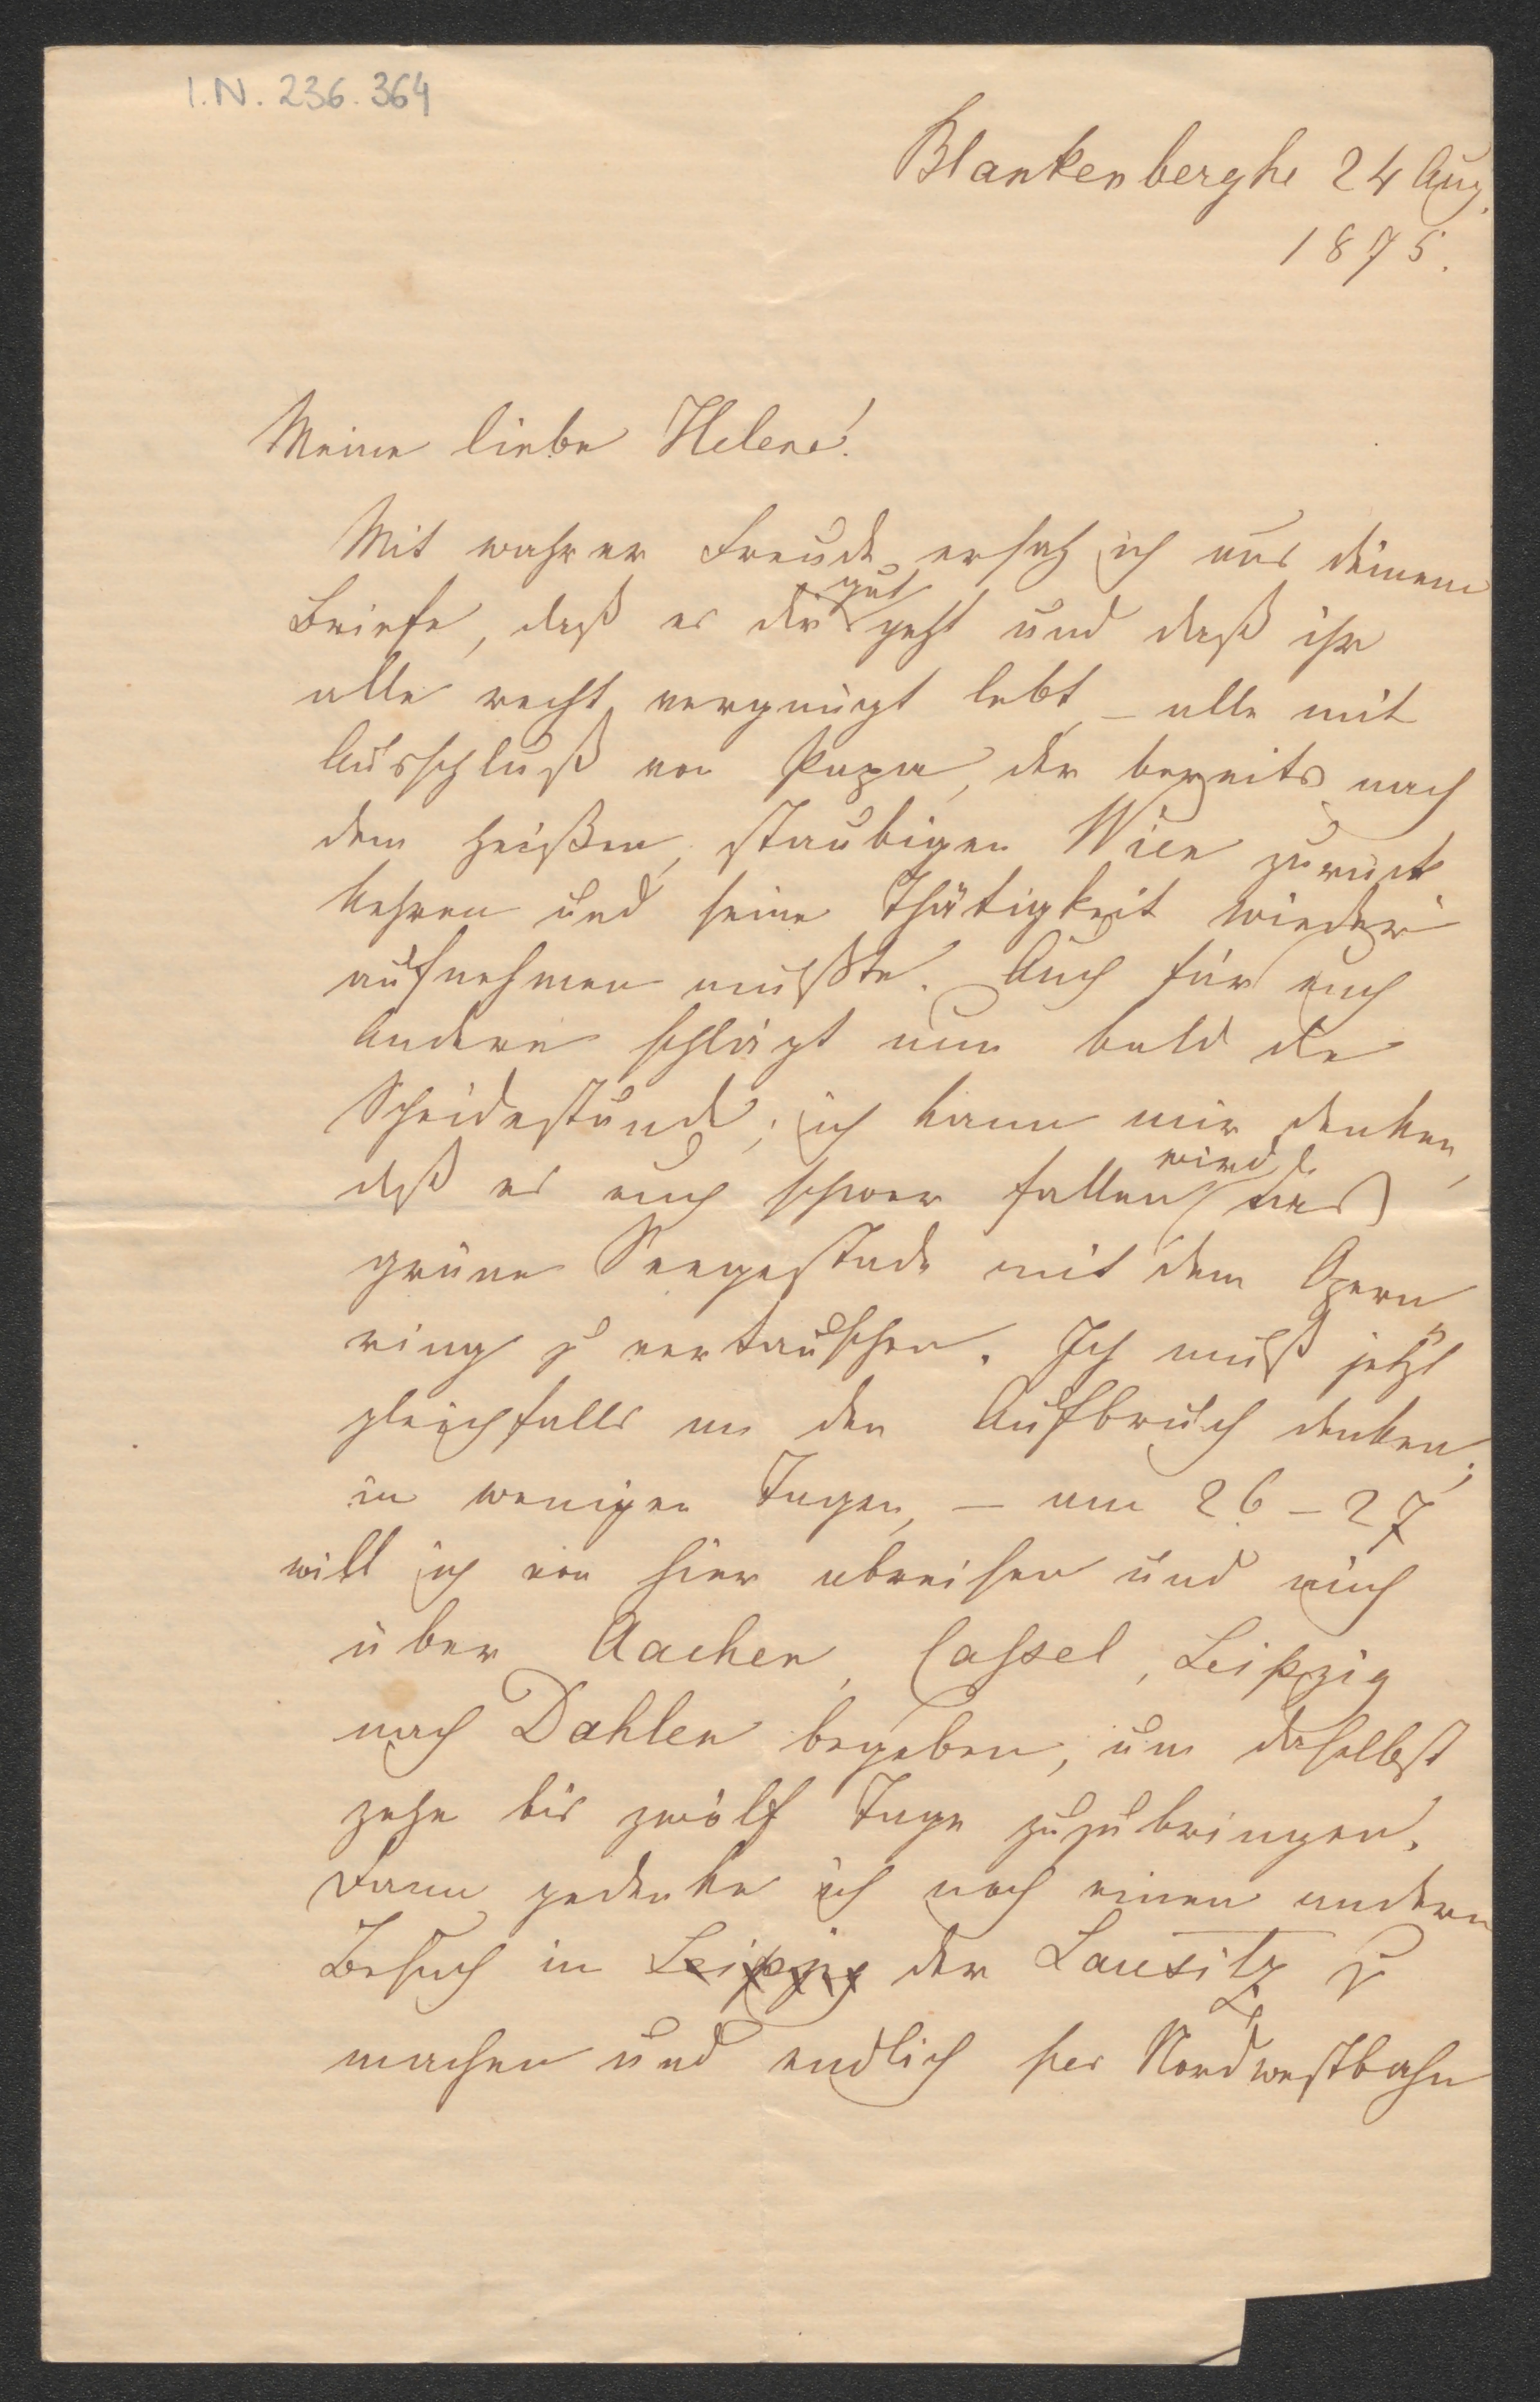 I.N. 236.364
Blankenberghe 24 Aug.
1875.
Meine liebe Helene!
Mit wahrer Freude ersah ich aus deinem
gut
Briefe, daß es dir geht und daß ihr
alle recht vergnügt lebt – alle mit
Ausschluß von Papa, der bereits nach
dem heißen, staubigen Wien zurück
kehren und seine Thätigkeit wieder
aufnehmen mußte. Auch für euch
Andere schlägt nun bald die
Scheidestunde; ich kann mir denken,
wird
daß es euch schwer fallen das
grüne Seegestade mit dem Opern
ring zu vertauschen. Ich muß jetzt
gleichfalls an den Aufbruch denken;
in wenigen Tagen, – am 26–27
will ich von hier abreisen und mich
über Aachen, Cassel, Leipzig
nach Dahlen begeben, um daselbst
zehn bis zwölf Tage zuzubringen.
Dann gedenke ich noch einen andern
Besuch in Leipzig der Lausitz zu
machen und endlich per Nordwestbahn